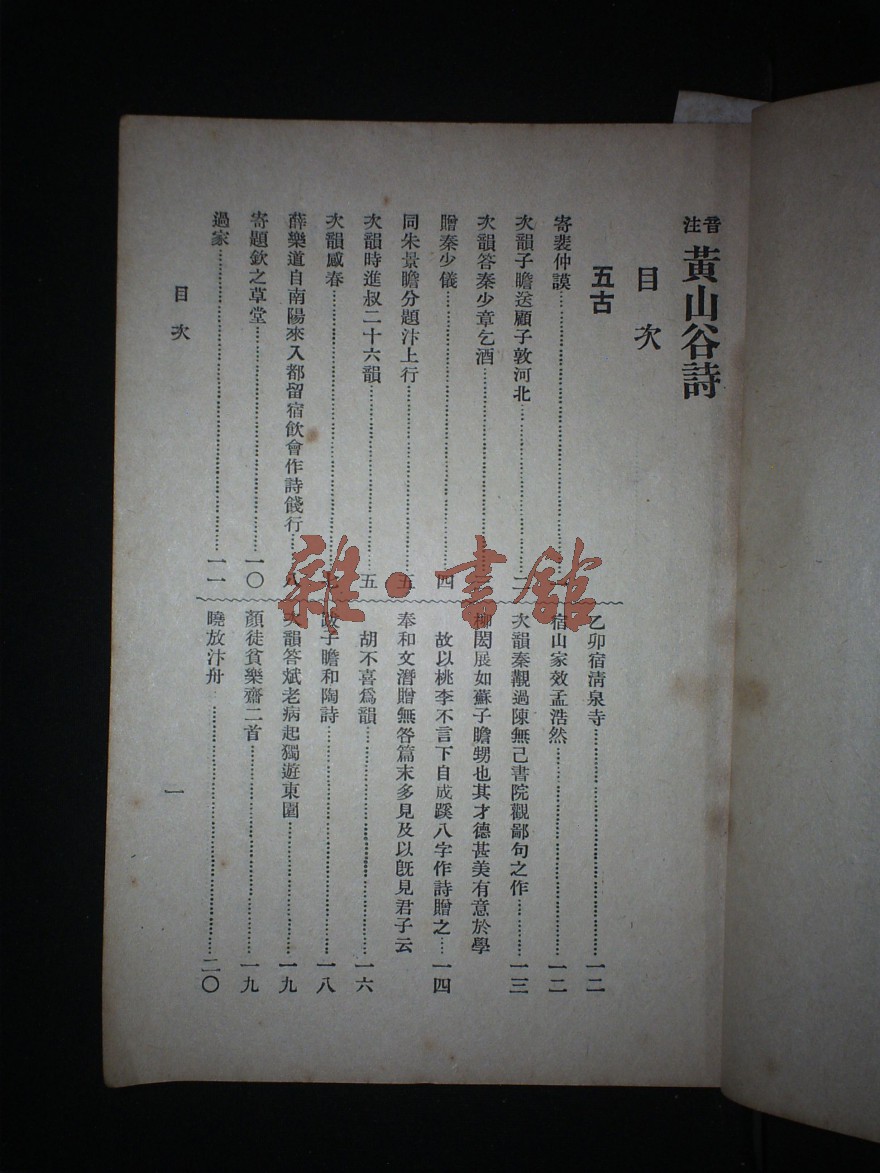 音注 黃山谷詩
目次
五古
寄裴仲謨……一
次韻子瞻送顧子敦河北……二
次韻答秦少章乞酒……三
贈秦少儀……四
同朱景瞻分題汴上行……五
次韻時進叔二十六韻……五
次韻感春……七
薛樂道自南陽來入都留宿飲會作詩餞行……八
寄題欽之草堂……一〇
過家……一一
乙卯宿清泉寺……一二
宿山家效孟浩然……一二
次韻秦觏過陳無己書院觀鄙句之作……一三
柳閎展如蘇子瞻甥也其才德甚美有意於學
故以桃李不言下自成蹊八字作詩贈之……一四
奉和文潛贈無咎篇末多見及以旣見君子云
胡不喜爲韻……一六
跋子瞻和陶詩……一八
次韻答斌老病起獨遊東園……一九
顏徒貧樂齋二首……一九
曉放汴舟……二〇
目次
一
雜·書館